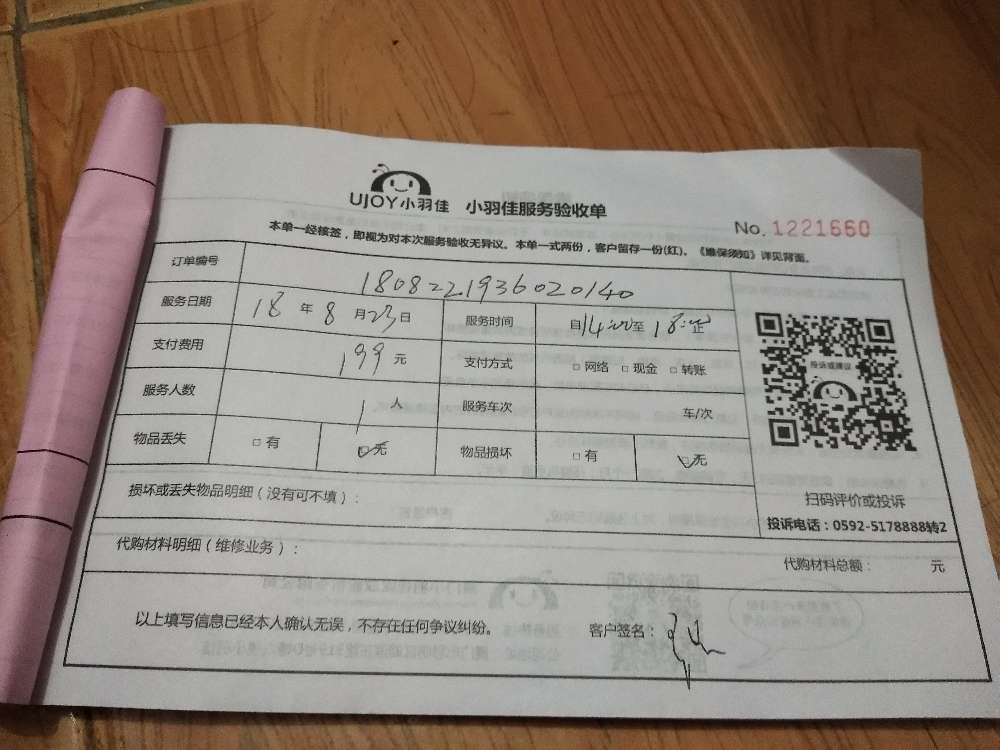 UJOY小羽佳 小羽佳服务验收单
No. 1221660
本单一经核签，即视为对本次服务验收无异议。本单一式两份，客户留存一份(红)。《维保须知》详见背面。
订单编号 1808221936020140
服务日期 18 年 8 月 23 日 服务时间 自14:00至18:00止
支付费用 199 元 支付方式 □ 网络 □ 现金 □ 转账
服务人数 1 人 服务车次 车/次
物品丢失 □ 有 □ 无 物品损坏 □ 有 □ 无
投诉或建议
损坏或丢失物品明细（没有可不填）：
扫码评价或投诉
投诉电话：0592-5178888转2
代购材料明细（维修业务）：
代购材料总额： 元
以上填写信息已经本人确认无误，不存在任何争议纠纷。 客户签名：